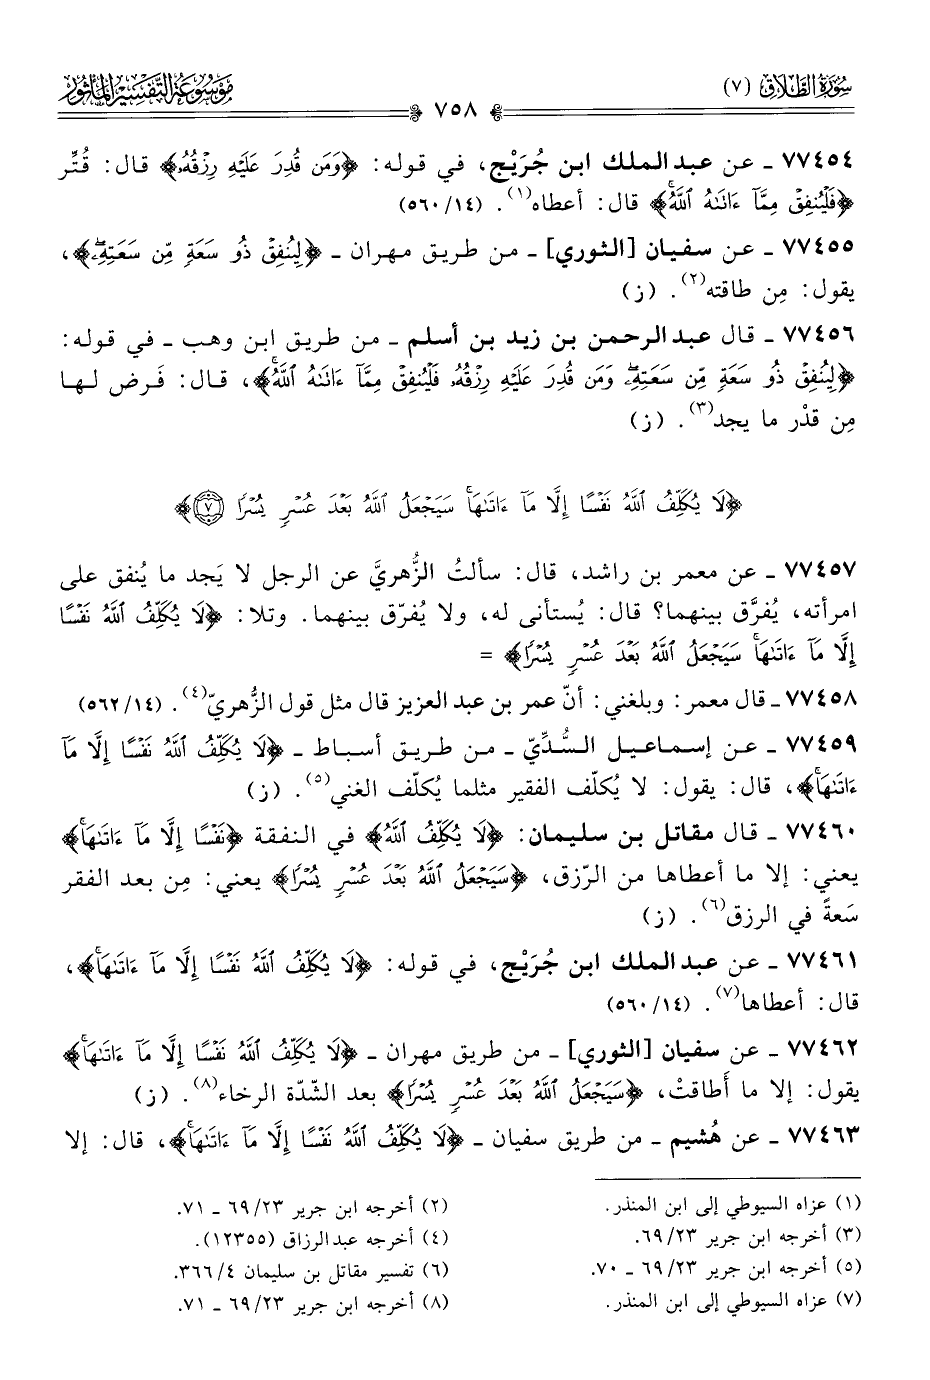 سُورَةُ الطَّلَاقِ (٧)
٧٥٨
مَوْسُوعَةُ التَّفْسِيرِ الْمَأْثُورِ
٧٧٤٥٤ ـ عن عبد الملك ابن جُرَيْج، في قوله: ﴿وَمَن قُدِرَ عَلَيْهِ رِزْقُهُۥ﴾ قال: قُتِّر
﴿فَلْيُنفِقْ مِمَّآ ءَاتَىٰهُ ٱللَّهُ﴾ قال: أعطاه(١). (١٤/٥٦٠)
٧٧٤٥٥ ـ عن سفيان [الثوري] ـ من طريق مهران ـ ﴿لِيُنفِقْ ذُو سَعَةٍ مِّن سَعَتِهِۦ﴾،
يقول: مِن طاقته(٢). (ز)
٧٧٤٥٦ ـ قال عبد الرحمن بن زيد بن أسلم ـ من طريق ابن وهب ـ في قوله:
﴿لِيُنفِقْ ذُو سَعَةٍ مِّن سَعَتِهِۦ وَمَن قُدِرَ عَلَيْهِ رِزْقُهُۥ فَلْيُنفِقْ مِمَّآ ءَاتَىٰهُ ٱللَّهُ﴾، قال: فَرض لها
مِن قدْر ما يجد(٣). (ز)
﴿لَا يُكَلِّفُ ٱللَّهُ نَفْسًا إِلَّا مَآ ءَاتَىٰهَا سَيَجْعَلُ ٱللَّهُ بَعْدَ عُسْرٍ يُسْرًا ٧﴾
٧٧٤٥٧ ـ عن معمر بن راشد، قال: سألتُ الزُّهريَّ عن الرجل لا يَجد ما يُنفق على
امرأته، يُفرَّق بينهما؟ قال: يُستأنى له، ولا يُفرّق بينهما. وتلا: ﴿لَا يُكَلِّفُ ٱللَّهُ نَفْسًا
إِلَّا مَآ ءَاتَىٰهَا سَيَجْعَلُ ٱللَّهُ بَعْدَ عُسْرٍ يُسْرًا﴾ =
٧٧٤٥٨ ـ قال معمر: وبلغني: أنّ عمر بن عبد العزيز قال مثل قول الزُّهريّ(٤). (١٤/٥٦٢)
٧٧٤٥٩ ـ عن إسماعيل السُّدِّيّ ـ من طريق أسباط ـ ﴿لَا يُكَلِّفُ ٱللَّهُ نَفْسًا إِلَّا مَآ
ءَاتَىٰهَا﴾، قال: يقول: لا يُكلّف الفقير مثلما يُكلّف الغني(٥). (ز)
٧٧٤٦٠ ـ قال مقاتل بن سليمان: ﴿لَا يُكَلِّفُ ٱللَّهُ﴾ في النفقة ﴿نَفْسًا إِلَّا مَآ ءَاتَىٰهَا﴾
يعني: إلا ما أعطاها من الرّزق، ﴿سَيَجْعَلُ ٱللَّهُ بَعْدَ عُسْرٍ يُسْرًا﴾ يعني: مِن بعد الفقر
سَعةً في الرزق(٦). (ز)
٧٧٤٦١ ـ عن عبد الملك ابن جُرَيْج، في قوله: ﴿لَا يُكَلِّفُ ٱللَّهُ نَفْسًا إِلَّا مَآ ءَاتَىٰهَا﴾،
قال: أعطاها(٧). (١٤/٥٦٠)
٧٧٤٦٢ ـ عن سفيان [الثوري] ـ من طريق مهران ـ ﴿لَا يُكَلِّفُ ٱللَّهُ نَفْسًا إِلَّا مَآ ءَاتَىٰهَا﴾
يقول: إلا ما أَطاقتْ، ﴿سَيَجْعَلُ ٱللَّهُ بَعْدَ عُسْرٍ يُسْرًا﴾ بعد الشّدّة الرخاء(٨). (ز)
٧٧٤٦٣ ـ عن هُشيم ـ من طريق سفيان ـ ﴿لَا يُكَلِّفُ ٱللَّهُ نَفْسًا إِلَّا مَآ ءَاتَىٰهَا﴾، قال: إلا
(١) عزاه السيوطي إلى ابن المنذر.
(٢) أخرجه ابن جرير ٢٣/٦٩ ـ ٧١.
(٣) أخرجه ابن جرير ٢٣/٦٩.
(٤) أخرجه عبد الرزاق (١٢٣٥٥).
(٥) أخرجه ابن جرير ٢٣/٦٩ ـ ٧٠.
(٦) تفسير مقاتل بن سليمان ٤/٣٦٦.
(٧) عزاه السيوطي إلى ابن المنذر.
(٨) أخرجه ابن جرير ٢٣/٦٩ ـ ٧١.